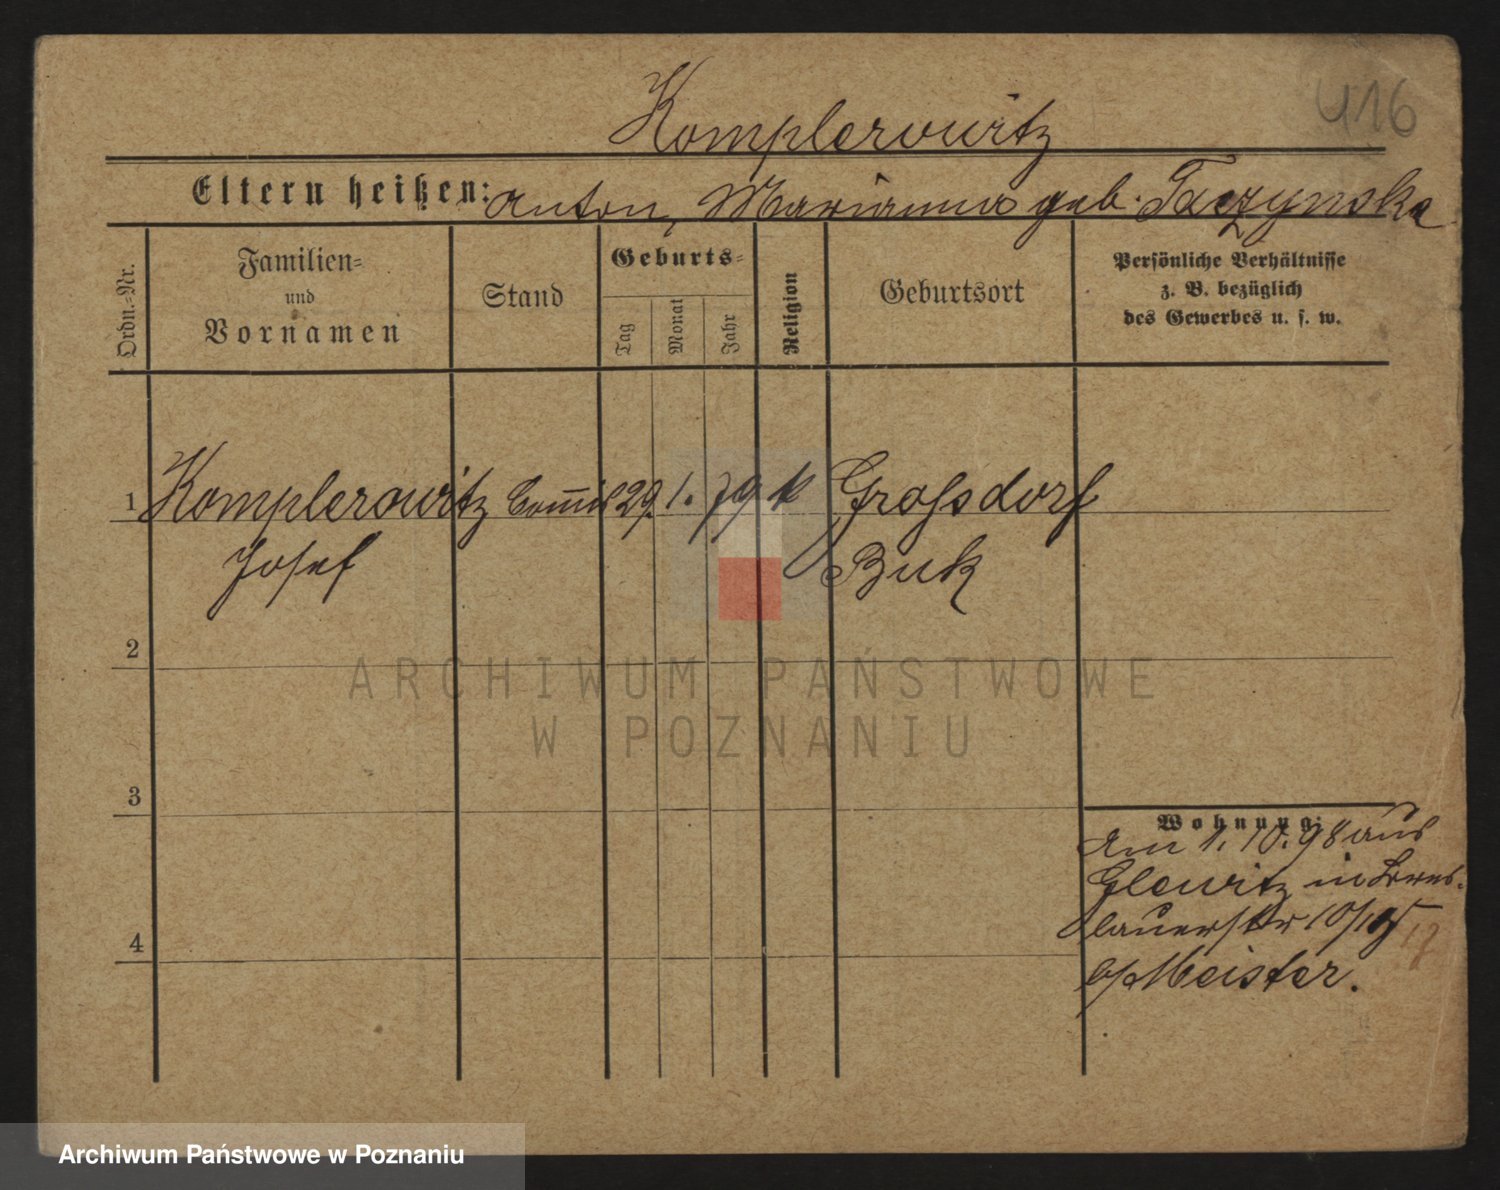 416
Komplerowitz
Eltern heißen: Anton, Marianna geb. Taczynska
Ordn.-Nr.
Familien-
und
Vornamen
Stand
Geburts-
Tag
Monat
Jahr
Religion
Geburtsort
Persönliche Verhältnisse
z. B. bezüglich
des Gewerbes u. s. w.
1 Komplerowitz Commis 29. 1. 79 k Großdorf
Josef Buk
2
3
4
Wohnung:
Am 1.10.98 aus
Glewitz in Bres-
lauerstr 10/
b/ Meister.
17
ARCHIWUM PAŃSTWOWE
W POZNANIU
Archiwum Państwowe w Poznaniu